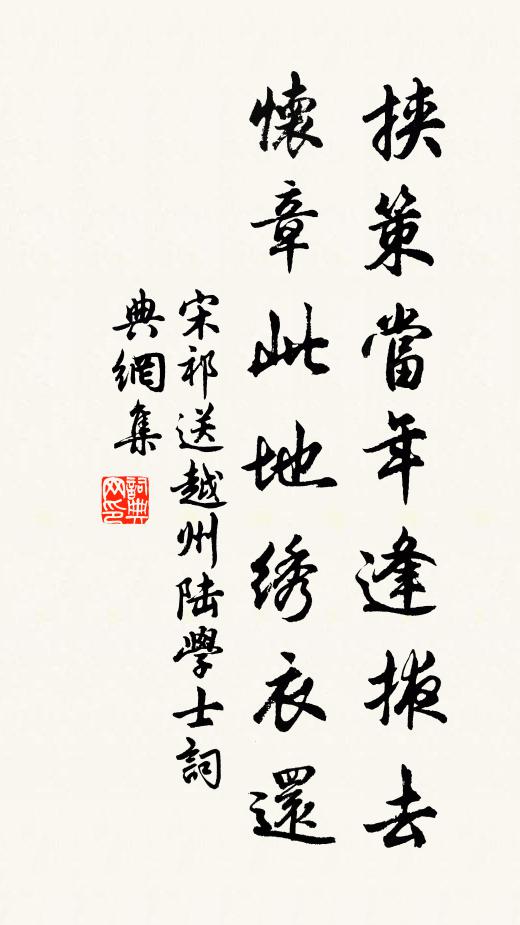 挾策當年逢掖去
懷章此地绣衣還
宋祁送越州陆學士詞
典網集
詞典网印